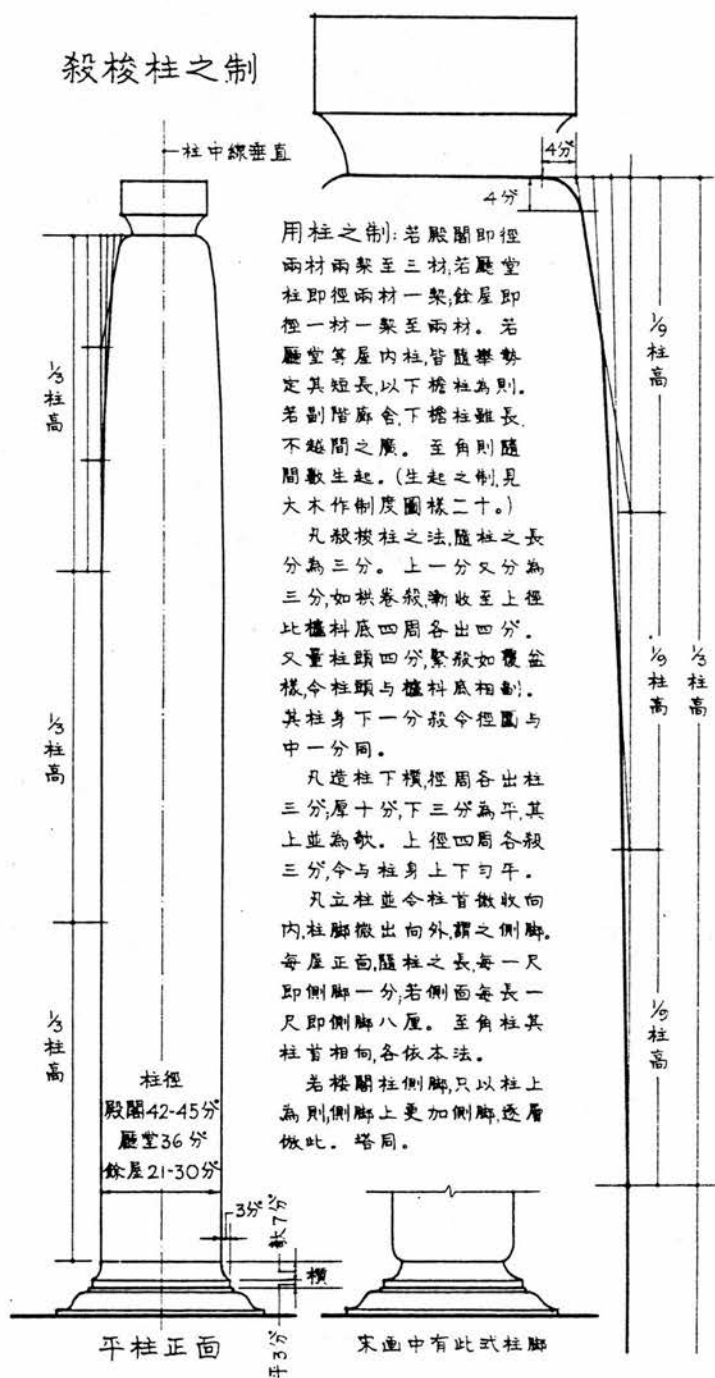 殺梭柱之制
柱中線垂直
4分
4分
用柱之制:若殿閣即徑
兩材兩栔至三材,若廳堂
柱即徑兩材一栔,餘屋即
徑一材一栔至兩材。若
廳堂等屋内柱,皆隨舉勢
定其短長,以下檐柱為則.
若副階廊舍,下檐柱雖長,
不越間之廣。至角則隨
間數生起。(生起之制,見
大木作制度圖樣二十。)
凡殺梭柱之法,隨柱之長
分為三分。上一分又分為
三分,如栱卷殺,漸收至上徑
比櫨枓底四周各出四分.
又量柱頭四分,緊殺如覆盆
樣,令柱頭与櫨枓底相副.
其柱身下一分殺令徑圍与
中一分同。
凡造柱下櫍,徑周各出柱
三分;厚十分,下三分為平,其
上並為欹。上徑四周各殺
三分,令与柱身上下勻平。
凡立柱並令柱首微收向
内,柱脚微出向外,謂之側脚.
每屋正面,隨柱之長,每一尺
即側脚一分;若側面每長一
尺即側脚八厘。至角柱其
柱首相向,各依本法。
若楼閣柱側脚,只以柱上
為則,側脚上更加側脚,逐層
倣此。塔同。
1/3柱高
1/3柱高
1/3柱高
1/9柱高
1/9柱高
1/9柱高
1/3柱高
柱徑
殿閣42-45分
廳堂36分
餘屋21-30分
3分
欹7分
櫍
平3分
平柱正面
宋画中有此式柱脚